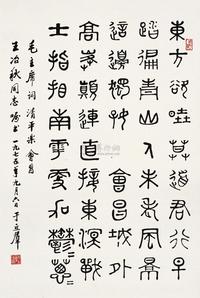 東方欲曉莫道君行早
踏遍青山人未老風景
這邊獨好會昌城外
高峯顛連直接東溟戰
士指看南粵更加鬱〻蔥〻
毛主席詞清平樂會昌
王冶秋同志嘱书一九七五年九月六日于立羣